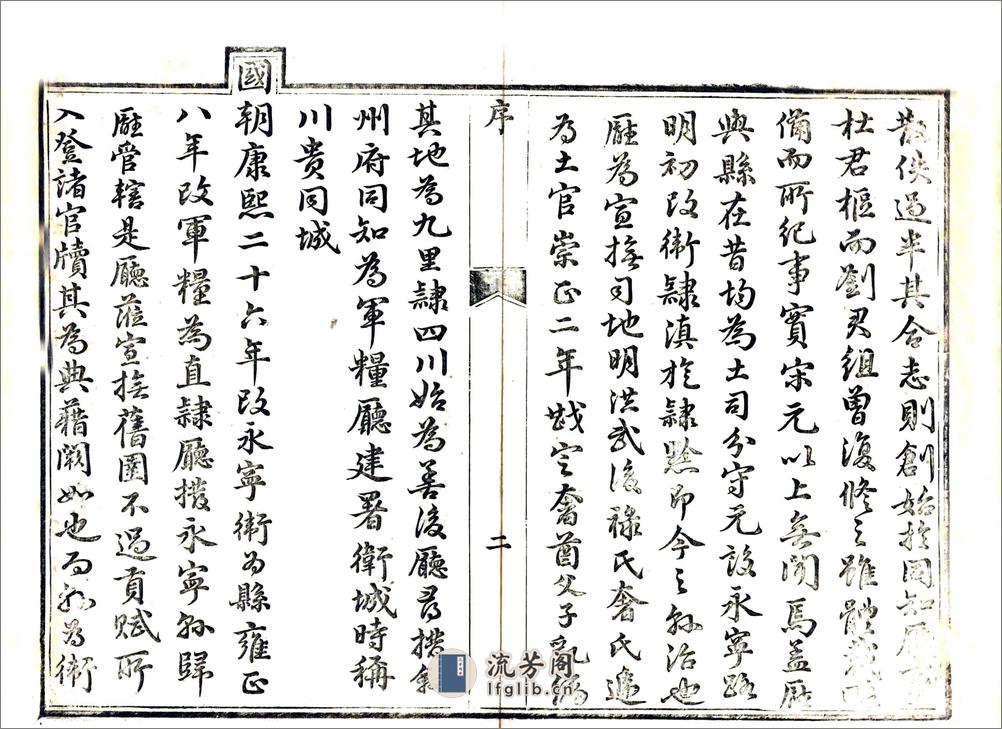 散佚過半其合志則創始於同知
杜君樞而劉君組曾復修之雖體
備而所紀事實宋元以上無聞焉蓋廳
與縣在昔均為土司分守元設永寧路
明初改衛隸滇於隸黔即今之縣治也
廳為宣撫司地明洪武後祿氏奢氏遞
為土官崇正二年戡定奢酋父子亂編
序
二
其地為九里隸四川始為善後廳尋撥敘
州府同知為軍糧廳建署衛城時稱
川貴同城
國
朝康熙二十六年改永寧衛為縣雍正
八年改軍糧為直隸廳撥永寧縣歸
廳管轄是廳蒞宣撫舊圉不過貢賦所
入登諸官牘其為典藉闕如也而縣為衛
流芳阁
lfglib.cn